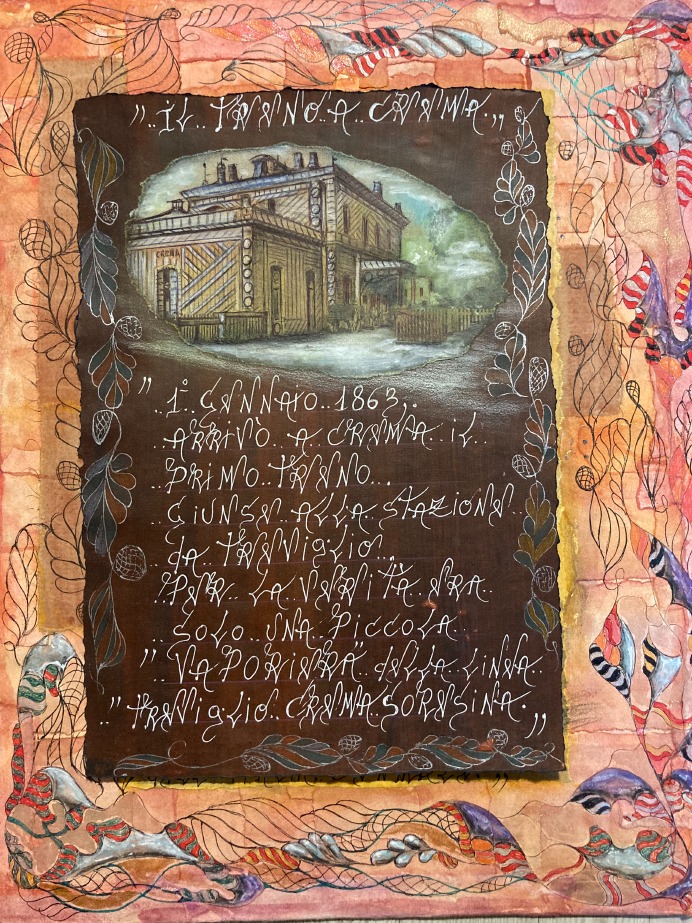 "..IL..TRENO..A..CREMA.„
CREMA
"..1°..GENNAIO..1863,.
..ARRIVÒ..A..CREMA..IL..
..PRIMO..TRENO...
..GIUNSE..ALLA..STAZIONE..
..DA..TREVIGLIO..
..PER..LA..VERITÀ..ERA..
..SOLO..UNA..PICCOLA
"VAPORIERA"..DELLA..LINEA..
.."TREVIGLIO..CREMA..SORESINA.„